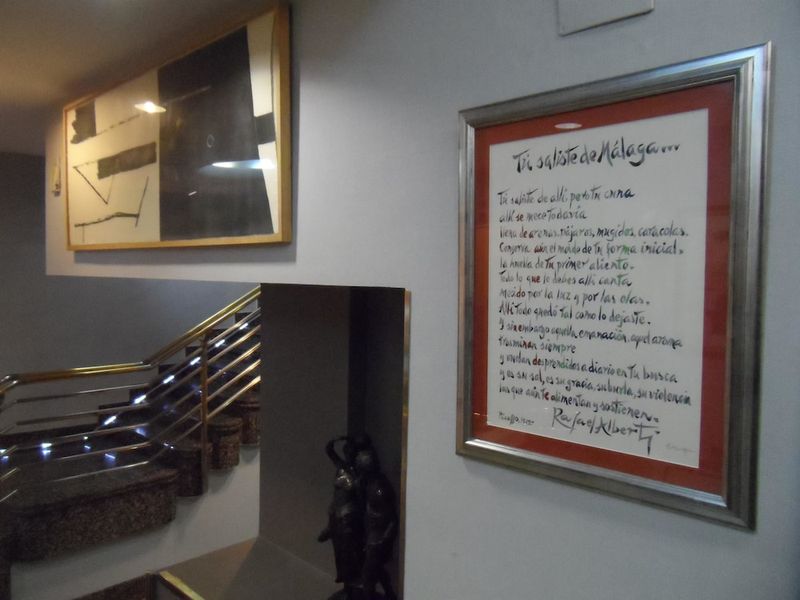 Tú saliste de Málaga...
Tú saliste de allí, pero tu cuna
allí se mece todavía
llena de arenas, pájaros, mugidos, caracolas.
Conserva aún el molde de tu forma inicial,
la huella de tu primer aliento.
Todo lo que le debes allí canta
mecido por la luz y por las olas.
Allí todo quedó tal como lo dejaste.
Y sin embargo aquella emanación, aquel aroma
trasminan siempre
y vuelan desprendidos a diario en tu busca
y es su sal, es su gracia, su burla, su violencia
los que aún te alimentan y sostienen.
Rafael Alberti